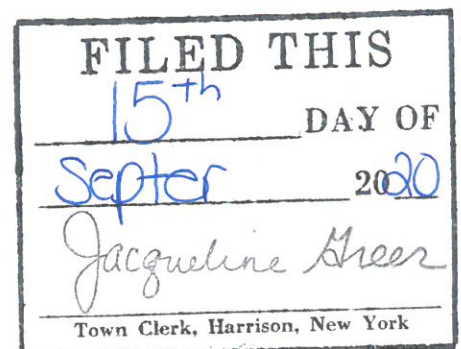 FILED THIS
15th DAY OF
Septer 2020
Jacqueline Greer
Town Clerk, Harrison, New York